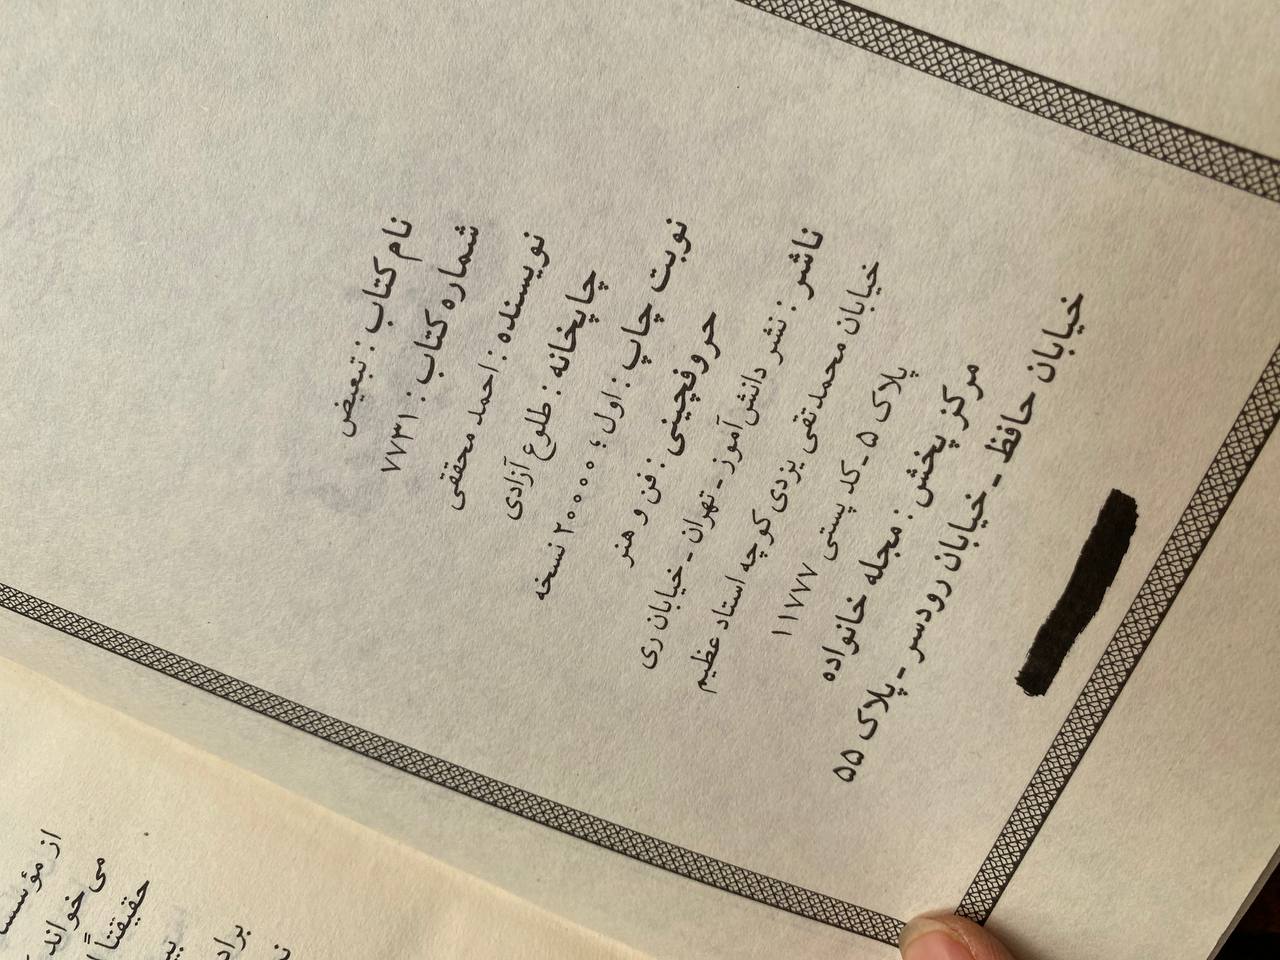 نام کتاب : تبعیض
شماره کتاب : ۷۷۳۱
نویسنده : احمد محققی
چاپخانه : طلوع آزادی
نوبت چاپ : اول ؛ ۲۰۰۰۰ نسخه
حروفچینی : فن و هنر
ناشر : نشر دانش‌آموز ـ تهران ـ خیابان ری
خیابان محمدتقی یزدی کوچه استاد عظیم
پلاک ۵ ـ کد پستی ۱۱۷۷۷
مرکز پخش : مجله خانواده
خیابان حافظ ـ خیابان رودسر ـ پلاک ۵۵
از
می‌خواند
حقیقتاً